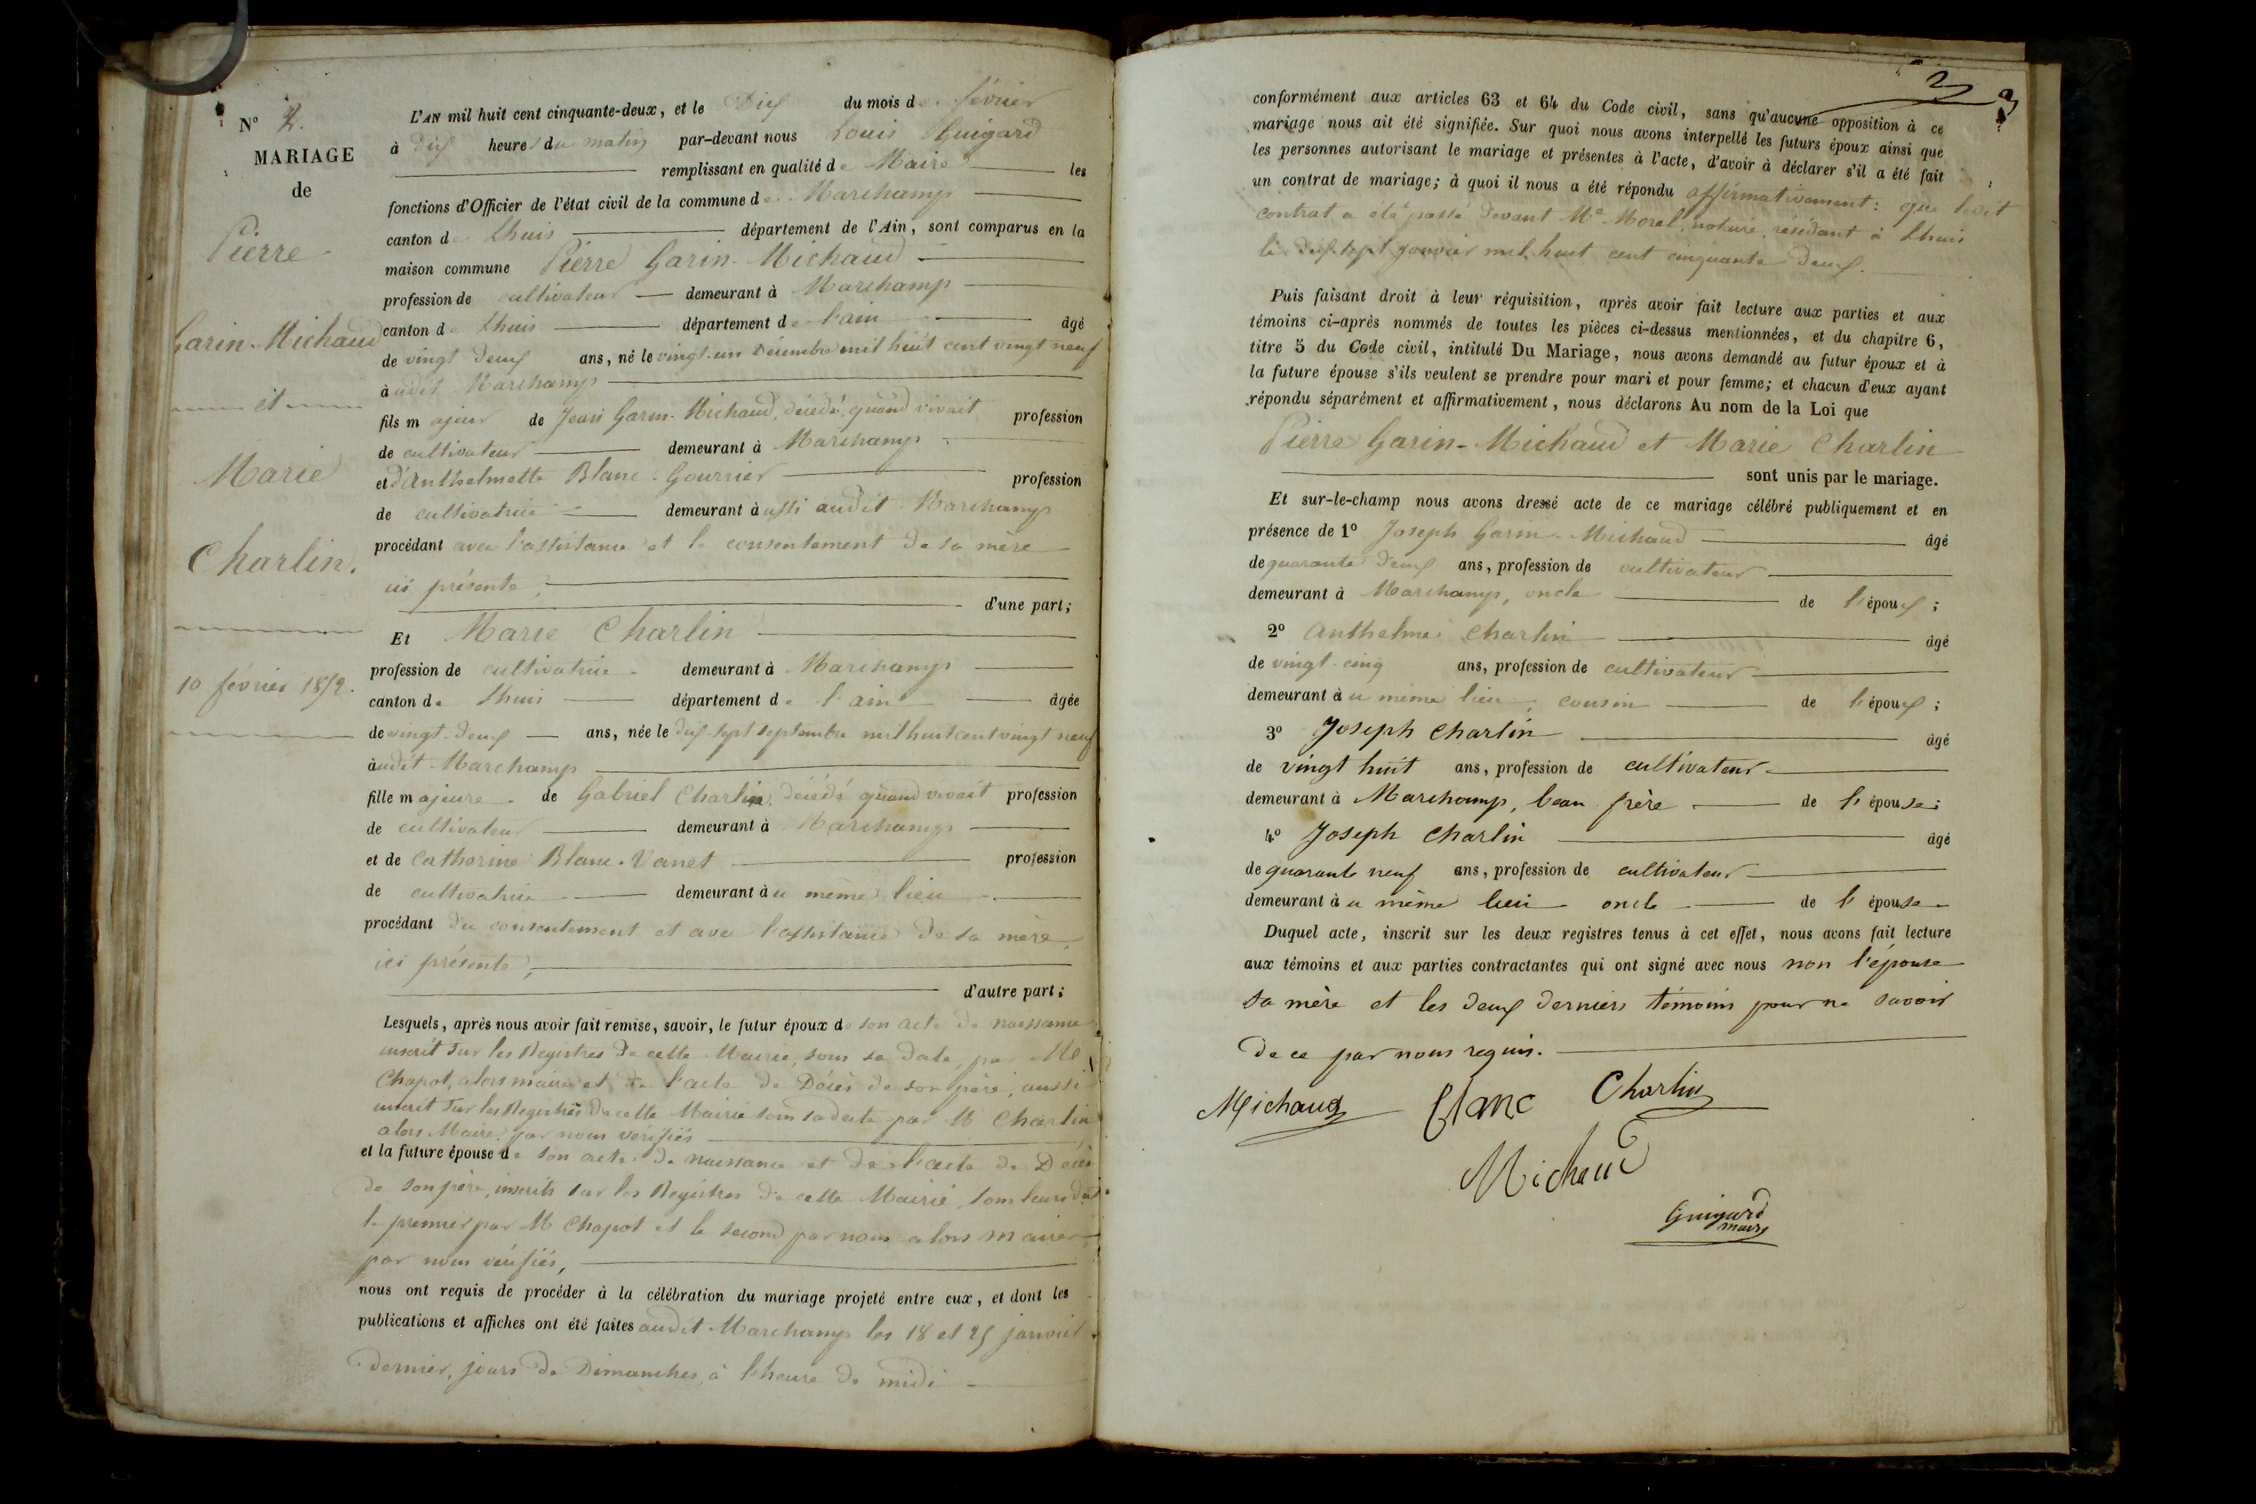 N° 2.
MARIAGE
de
Pierre
Garin-Michaud
et
Marie
Charlin.
10 février 1852.
L'AN mil huit cent cinquante-deux, et le Dix du mois de février
à dix heures du matin par-devant nous Louis Guigard
remplissant en qualité de Maire les
fonctions d'Officier de l'état civil de la commune de Marchamp
canton de Lhuis département de l'Ain, sont comparus en la
maison commune Pierre Garin-Michaud
profession de cultivateur demeurant à Marchamp
canton de Lhuis département de l'ain âgé
de vingt deux ans, né le vingt-un Décembre mil huit cent vingt neuf
à udit Marchamp
fils majeur de Jean Garin-Michaud, décédé, quand vivait profession
de cultivateur demeurant à Marchamp
et d'Anthelmette Blanc-Gourrier profession
de cultivatrice demeurant à ussi audit Marchamp
procédant avec l'assistance et le consentement de sa mère
ici présente,
d'une part;
Et Marie Charlin
profession de cultivatrice demeurant à Marchamp
canton de Lhuis département de l'ain âgée
de vingt-deux ans, née le dix-sept septembre mil huit cent vingt neuf
à udit Marchamp
fille majeure de Gabriel Charlin, décédé quand vivait profession
de cultivateur demeurant à Marchamp
et de Catherine Blanc-Vanet profession
de cultivatrice demeurant à u même lieu
procédant du consentement et avec l'assistance de sa mère,
ici présente,
d'autre part;
Lesquels, après nous avoir fait remise, savoir, le futur époux de son acte de naissance
inscrit sur les Registres de cette Mairie, sous sa date, par Mr
Chapot, alors maire et de l'acte de Décès de son père, aussi
inscrit sur les Registres de cette Mairie sous sa date par Mr Charlin
alors Maire, par nous vérifiés
et la future épouse de son acte de naissance et de l'acte de Décès
de son père, inscrits sur les Registres de cette Mairie, sous leurs dates
le premier par Mr Chapot et le second par nous alors maire
par nous vérifiés,
nous ont requis de procéder à la célébration du mariage projeté entre eux, et dont les
publications et affiches ont été faites audit Marchamp les 18 et 25 janvier
dernier, jours de Dimanches, à l'heure de midi
conformément aux articles 63 et 64 du Code civil, sans qu'aucune opposition à ce
mariage nous ait été signifiée. Sur quoi nous avons interpellé les futurs époux ainsi que
les personnes autorisant le mariage et présentes à l'acte, d'avoir à déclarer s'il a été fait
un contrat de mariage; à quoi il nous a été répondu affirmativement: que ledit
contrat a été passé devant Me Morel, notaire, résidant à Lhuis
le dix-sept janvier mil huit cent cinquante deux.
Puis faisant droit à leur réquisition, après avoir fait lecture aux parties et aux
témoins ci-après nommés de toutes les pièces ci-dessus mentionnées, et du chapitre 6,
titre 5 du Code civil, intitulé Du Mariage, nous avons demandé au futur époux et à
la future épouse s'ils veulent se prendre pour mari et pour femme; et chacun d'eux ayant
répondu séparément et affirmativement, nous déclarons Au nom de la Loi que
Pierre Garin-Michaud et Marie Charlin
sont unis par le mariage.
Et sur-le-champ nous avons dressé acte de ce mariage célébré publiquement et en
présence de 1° Joseph Garin-Michaud âgé
de quarante deux ans, profession de cultivateur
demeurant à Marchamp, oncle de l'époux;
2° Anthelme Charlin âgé
de vingt-cinq ans, profession de cultivateur
demeurant à u même lieu, cousin de l'époux;
3° Joseph Charlin âgé
de vingt huit ans, profession de cultivateur
demeurant à Marchamp, beau frère de l'épouse;
4° Joseph Charlin âgé
de quarante neuf ans, profession de cultivateur
demeurant à u même lieu oncle de l'épouse
Duquel acte, inscrit sur les deux registres tenus à cet effet, nous avons fait lecture
aux témoins et aux parties contractantes qui ont signé avec nous non l'épouse
sa mère et les deux derniers témoins pour ne savoir
de ce par nous requis.
Michaud Blanc Charlin
Michaud
Guigard
maire